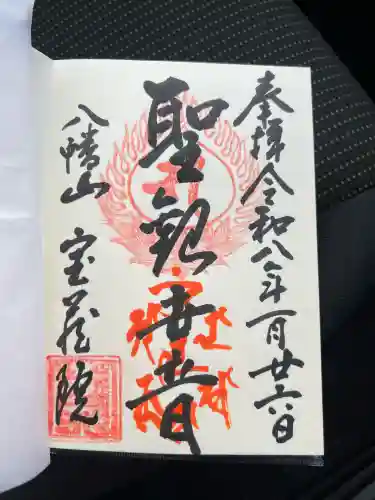 奉拝令和八年一月廿六日
聖観世音
八幡山 宝蔵院